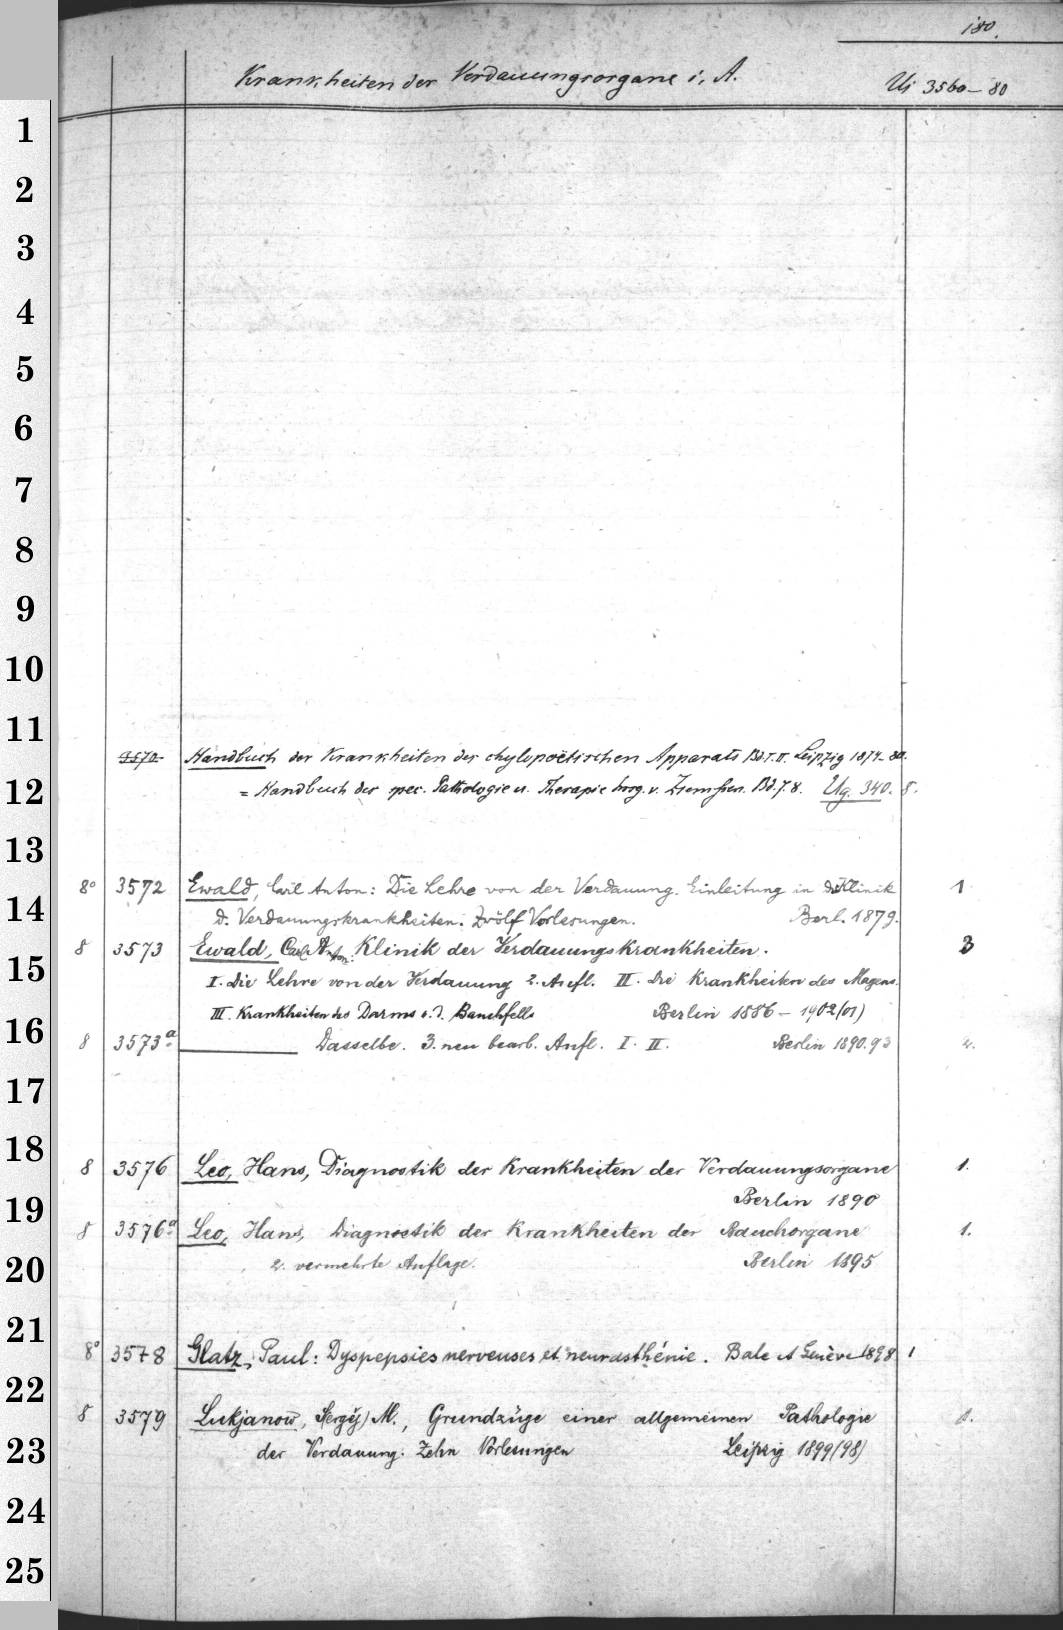 180.
Krankheiten der Verdauungsorgane i. A. Ui 3560-80
1
2
3
4
5
6
7
8
9
10
11
3570 Handbuch der Krankheiten des chylopoëtischen Apparats Bd. I. II. Leipzig 1874. 80.
12
= Handbuch der spec. Pathologie u. Therapie hrsg. v. Ziemssen. Bd. 7. 8. Ug. 340. 8.
13
8° 3572 Ewald, Carl Anton: Die Lehre von der Verdauung. Einleitung in d. Klinik 1
14
d. Verdauungskrankheiten. Zwölf Vorlesungen. Berl. 1879.
8 3573 Ewald, Carl Anton: Klinik der Verdauungskrankheiten. 3
15
I. Die Lehre von der Verdauung 2. Aufl. II. Die Krankheiten des Magens.
III. Krankheiten des Darms u. d. Bauchfells Berlin 1886-1902(01)
16
8 3573a. Dasselbe. 3. neu bearb. Aufl. I. II. Berlin 1890. 93 2.
17
18
8 3576 Leo, Hans, Diagnostik der Krankheiten der Verdauungsorgane 1.
Berlin 1890
19
8 3576a. Leo, Hans, Diagnostik der Krankheiten der Bauchorgane 1.
2. vermehrte Auflage. Berlin 1895
20
21
8° 3578 Glatz, Paul: Dyspepsies nerveuses et neurasthénie. Bale et Genève 1898 1
22
8 3579 Lukjanow, S(ergěj) M., Grundzüge einer allgemeinen Pathologie 1.
23
der Verdauung. Zehn Vorlesungen Leipzig 1899(98)
24
25